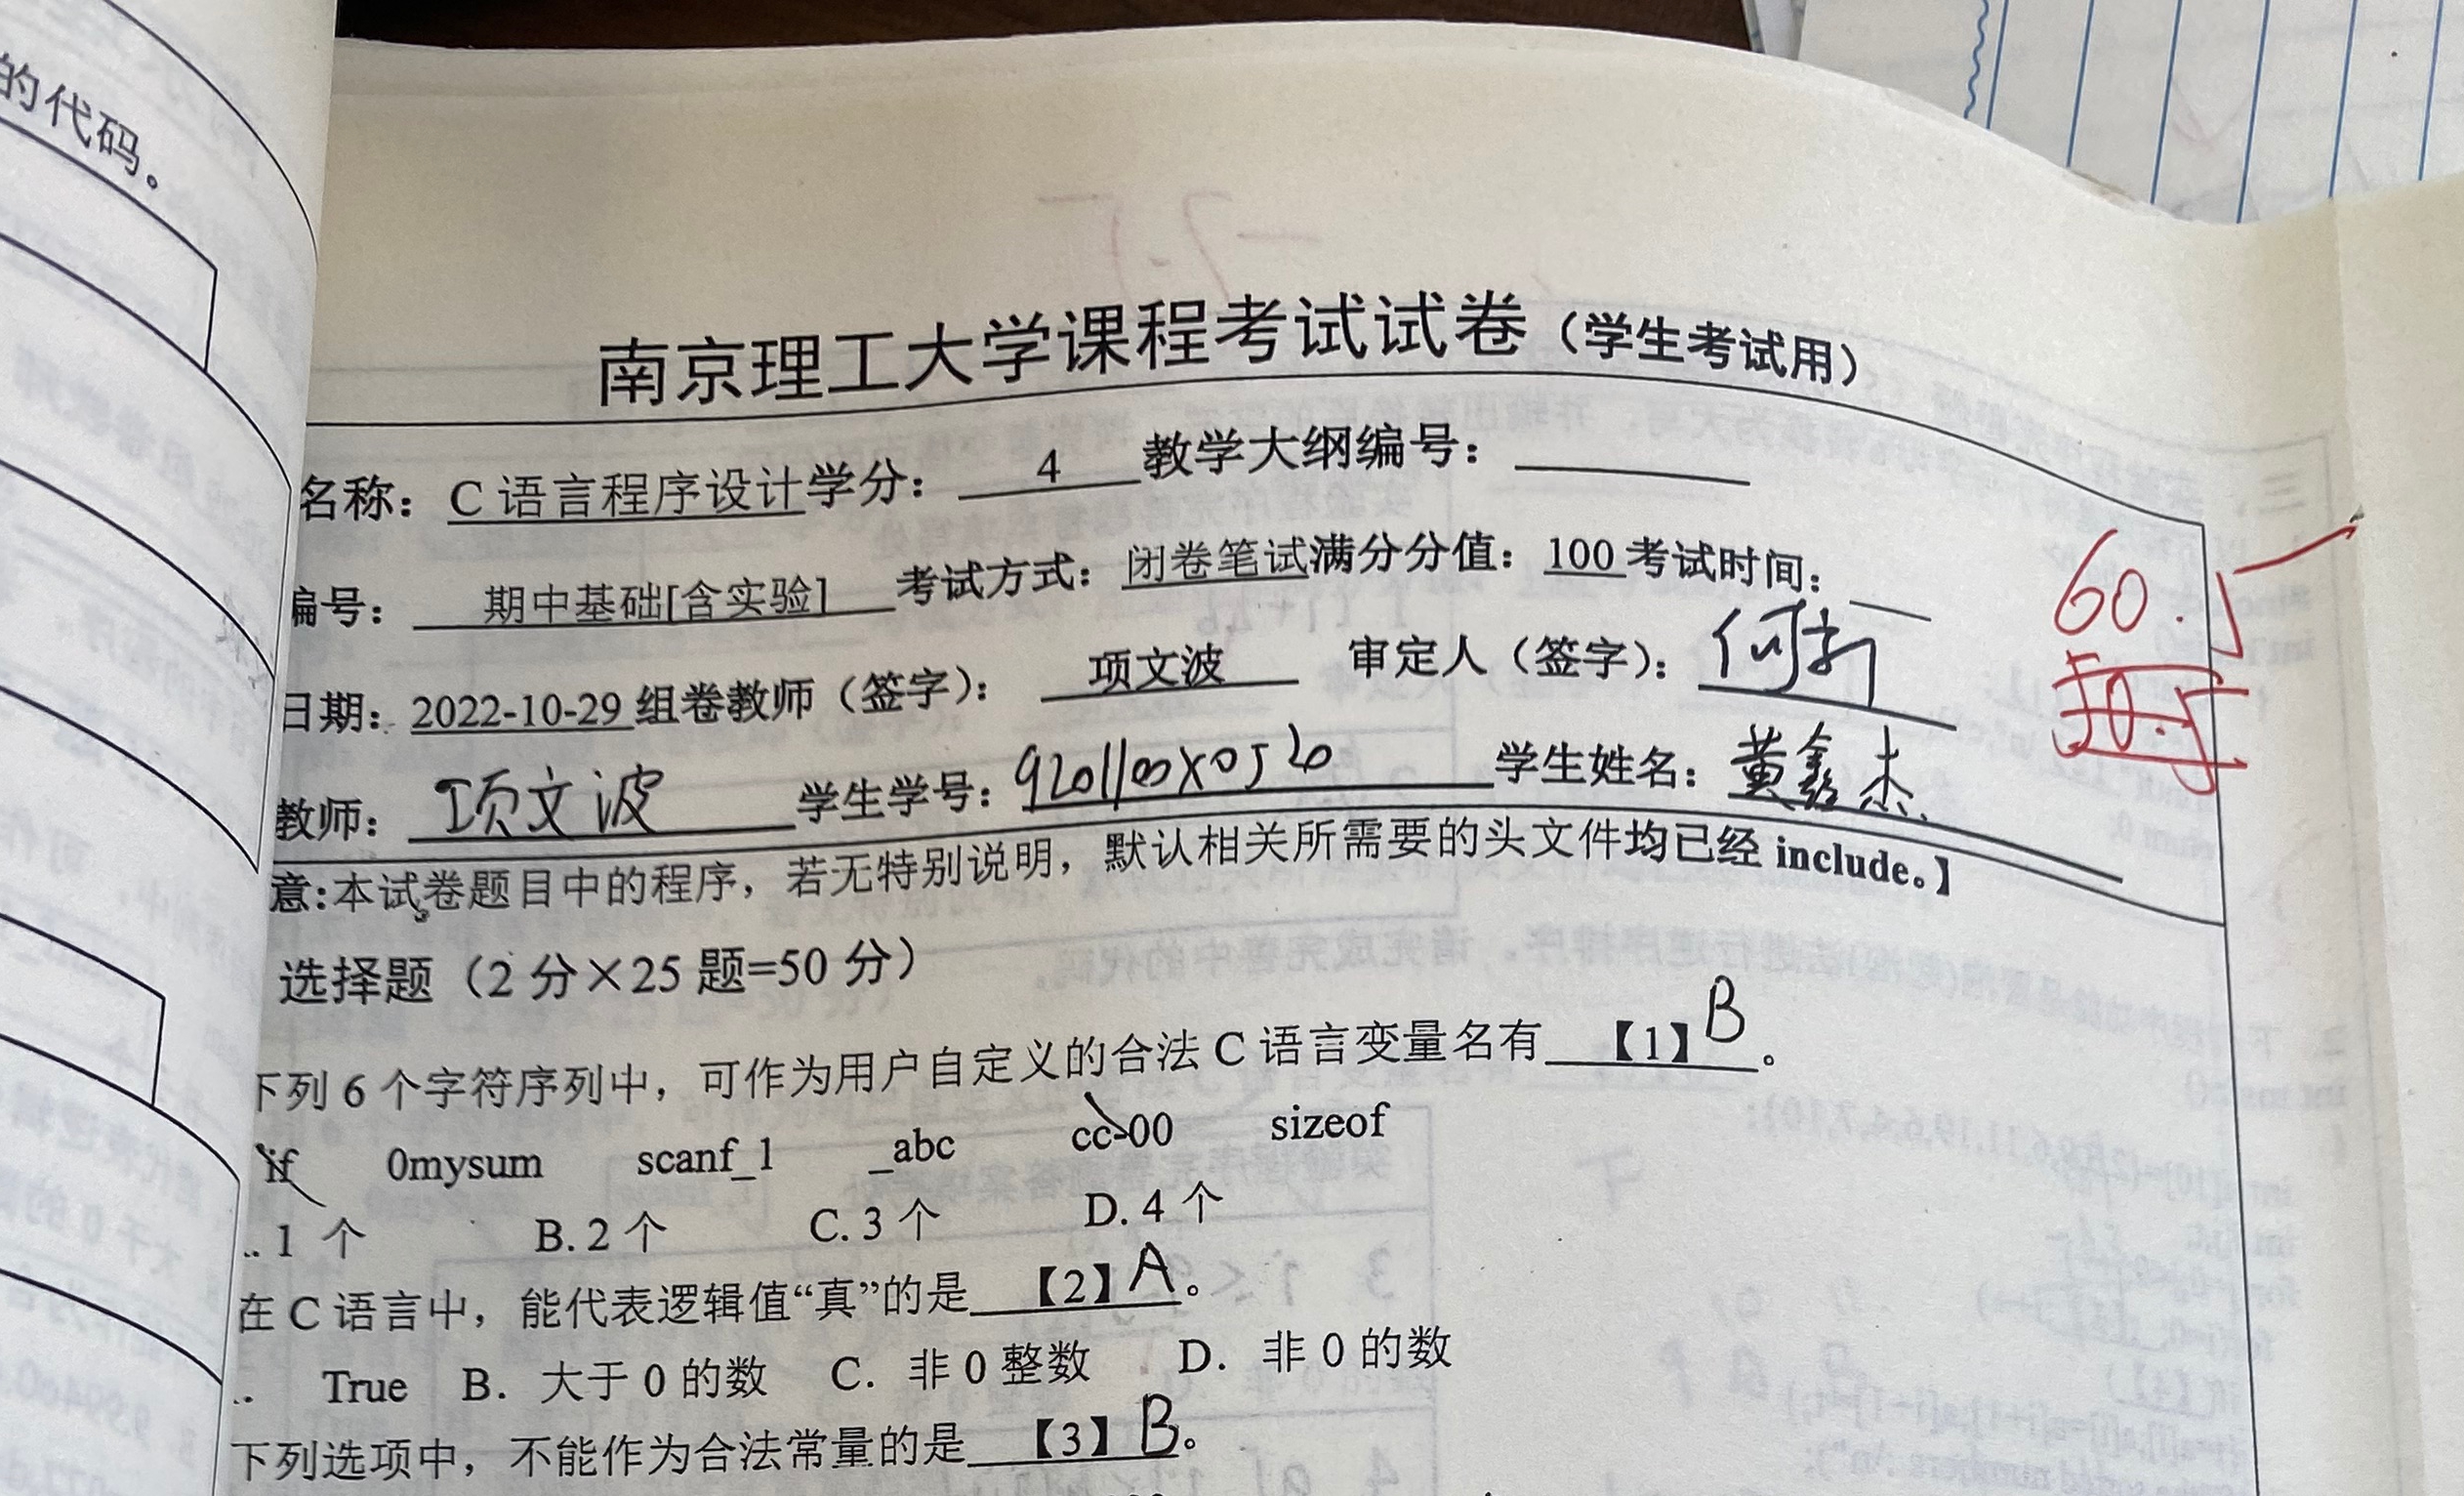 的代码。
南京理工大学课程考试试卷（学生考试用）
名称： C 语言程序设计学分： 4 教学大纲编号：
编号： 期中基础[含实验] 考试方式： 闭卷笔试满分分值： 100 考试时间：
60.5
日期： 2022-10-29 组卷教师（签字）： 项文波 审定人（签字）：
50.5
教师： 项文波 学生学号： 9201100X0520 学生姓名： 黄鑫杰
意:本试卷题目中的程序，若无特别说明，默认相关所需要的头文件均已经 include。】
选择题（2 分×25 题=50 分）
下列 6 个字符序列中，可作为用户自定义的合法 C 语言变量名有 【1】 B 。
if 0mysum scanf_1 _abc cc-00 sizeof
1 个 B. 2 个 C. 3 个 D. 4 个
在 C 语言中，能代表逻辑值“真”的是 【2】 A 。
True B. 大于 0 的数 C. 非 0 整数 D. 非 0 的数
下列选项中，不能作为合法常量的是 【3】 B 。